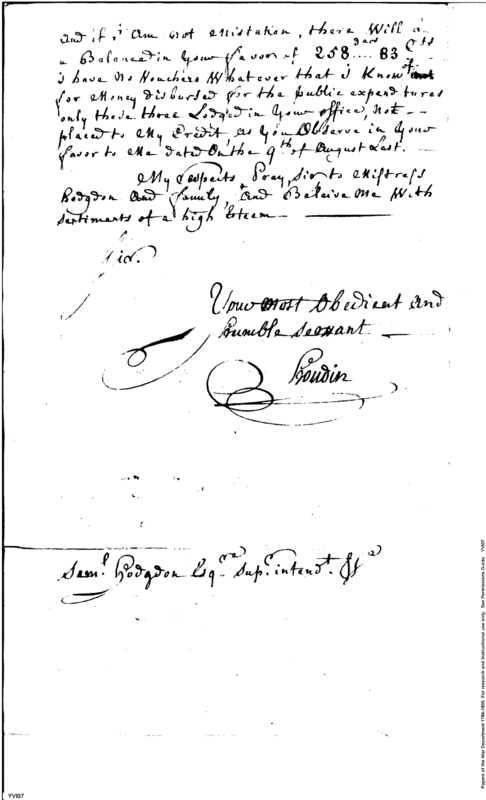 and if i Am not Mistaken, there Will
a Balance in Your favor of 258 dars .... 83 Cts
i have No Vouchers Whatever that i Know of
for Money disbursed for the public expenditures
only those three Lodged in Your office, Not
placed to My Credit, as You Observe in Your
favor to Me dated On the 9th of August Last. —
My respects Pray, Sir to Mistress
Hodgdon And family, And Beleive Me With
sertiments of a high Esteem —
Sir.
Your most Obedient And
humble servant —
Houdin
Saml. Hodgdon Esqre. Supr. intendt.
YVI07
Papers of the War Department 1784-1800. For research and instructional use only. See Permissions Guide. YVI07